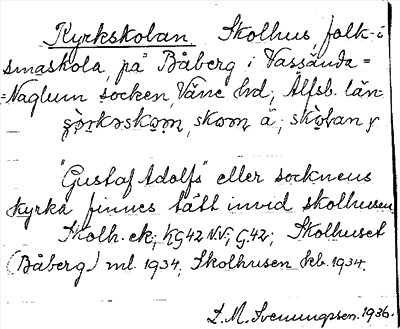 Kyrkskolan Skolhus folk- i
småskola, på Båberg i Vassända=
=Naglum socken, Väne hd; Älfsb. län-
skom, ä, skolan
"Gustaf Adolfs" eller socknens
kyrka finnes tätt invid skolhusen
Skolh. ek; KG42 N.V; G.42; Skolhuset
(Båberg) ml. 1934; Skolhusen feb. 1934.
L. M. Svenungsson. 1936.